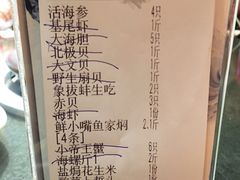 活海参 4只
基尾虾 1斤
大海胆 5只
北极贝 1斤
人文贝 1斤
野生扇贝 1斤
象拔蚌生吃 2只
赤贝 3只
海虾 1份
鲜小嘴鱼家焖 2.1斤
[4条]
小帝王蟹 6只
海螺片1 2斤
盐焗花生米 1份